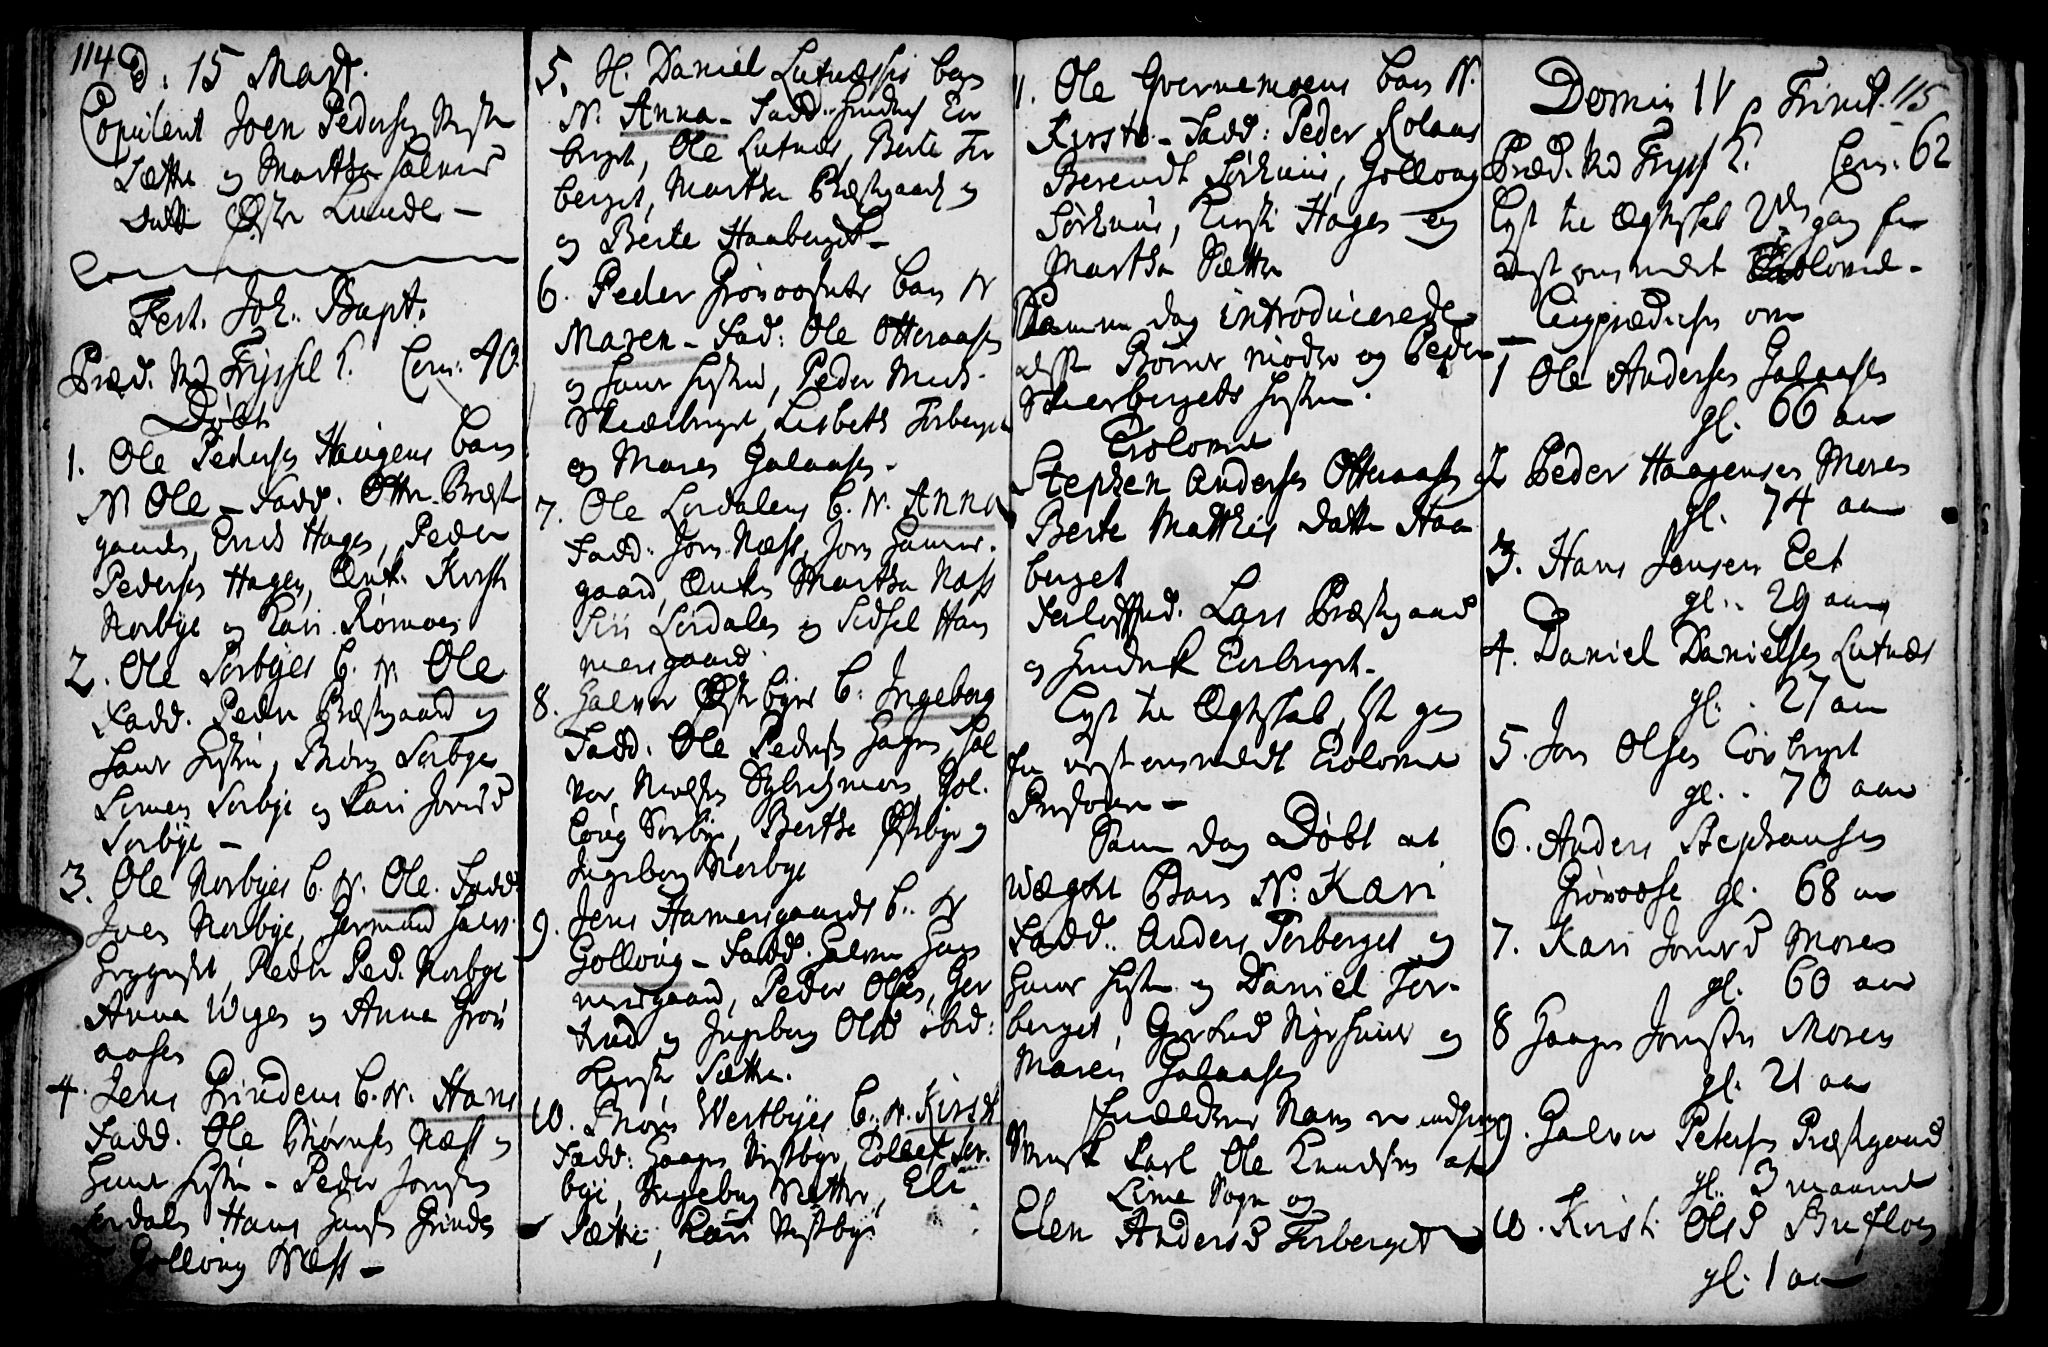 114
d: 15 Mart.
Copulent Joen Pedersen
Sætter og Martha Halvors
Datt Østre Lunde –
Fest. Joh. Bapt.
Præd. Md Tryssel K. Com: 40.
Døbt
1. Ole Pedersen Haugens barn
N Ole – Fadd. Otter Præst-
gaarden, Erich Hagen, Peder
Pedersen Hagen, Enk. Kirsti
Norbye og Kari
2. Ole Sorbyes b. N. Ole
Fadd. Peder Præstgaard og
hans hustru, Biørn Sorbye
Simen Sorbye og Kari Jonsd
Sorbye –
3. Ole Norbyes b. N. Ole. Fadd.
Joen Norbye, Gjermund Halv.
Peder Ped. Norbye
Anna Wigen og Anna Grøn
aasen
4. Jens Grindens b. N. Hans
Fadd. Ole Biørnsen Næss og
hans hustru – Peder Jonsen
Lerdalen Hans Hansen Grinden
Gollovig Næss –
5. H. Daniel Lutnæsses barn
N. Anna – Fadd. Hendrich Eer
berget, Ole Lutnæs, Berte Tør
berget, Martha Præstgaard og
og Berte Haaberget –
6. Peder Grønoosens barn N
Maren – Fad: Ole Otteraasen
og hans hustru, Peder Meds.
Skiærberget, Lisbeth Tørberget
og Maren Galaasen.
7. Ole Lerdalens b. N. Anna
Fadd. Jon Næss, Jon Hamers-
gaard, Enken Martha Næss
Siri Lerdalen og Sidsel Ham
mersgaard.
8. Halvor Østbyes b: Ingeborg
Fadd. Ole Pedersen Hagen, Hal
vor Nielsen Nybergmoen, Gol-
lovig Sorbye, Berthe Østbye og
Ingeborg Norbye
9. Jens Hamersgaards b. N
Gollovig – Fadd. Halvor Ham
mersgaard, Peder Olsen, Ger
trud og Ingeborg Olsd ibid:
Kirsti Sætter.
10. Biørn Westbyes b. N. Kirsti
Fadd: Haagen Westbye, Tollef Sor-
bye, Ingeborg Sætter, Eli
Sætter, Kari Westbye
11. Ole Qvernemoens barn N.
Kirsti – Fadd: Peder Kolaas
Berendt Sørhuus, Gollovig
Sørhuus, Kirsti Hagen og
Martha Sætter
Samme dag introducerede
disse Børns mødre og Peder
Skierbergets hustru.
Trolovet
Stephen Andersen Otteraasen og
Berte Matthis datter Haa
berget
Forlofftsm. Lars Præstgaard
og Hendrik Eerberget.
Lyst til Egteskab, 1ste gang
for nest ommeldt trolovede
Persohner –
Sam dag Døbt et
uægte Barn N: Kari
Fadd. Anders Torberget og
hans hustru og Daniel Tor-
berget, Gertrud Nyehuus og
Maren Galaasen
Forældrenes Navn er
Karl Ole Knudsen af
Lime Sogn og
Elen Andersd Torberget
Domin IV p Trinit. 115
Præd. Md Tryssel K. Com: 62
Lyst til Egteskab 2den gang for
nest ommeldt trolovede.
Liigprædiken over
1 Ole Andersen Galaasen
gl. 66 aar
2 Peder Haagensen Moren
gl. 74 aar
3. Hans Jensen Eet
gl. 29 aar
4. Daniel Danielsen Lutnæs
gl. 27 aar
5. Jon Olsen Eerberget
gl. 70 aar
6. Anders Stephansen
Grønoose gl. 68 aar
7. Kari Jonsd Moren
gl. 60 aar
8 Haagen Jonsen Moren
gl. 21 aar
9. Halvor Petersen Præstgaard
gl. 3 maaneder
10. Kirsti Olsd Bufloen
gl. 1 aar